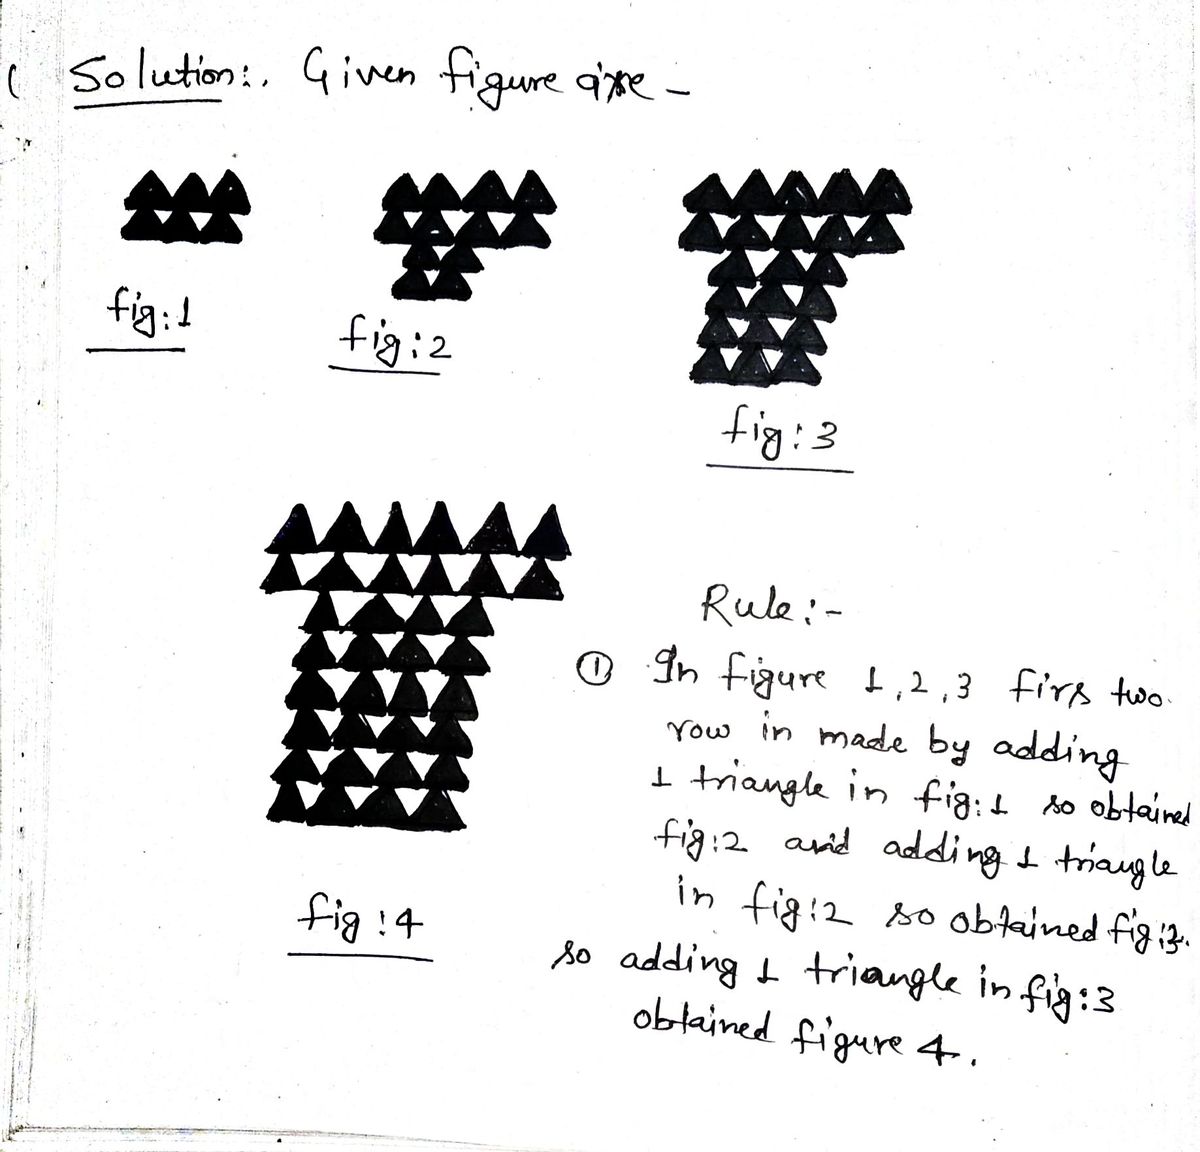 Solution:. Given figure are -
fig:1
fig:2
fig:3
fig:4
Rule:-
① In figure 1,2,3 firs two
row in made by adding
1 triangle in fig:1 so obtained
fig:2 and adding 1 triangle
in fig:2 so obtained fig:3.
so adding 1 triangle in fig:3
obtained figure 4.